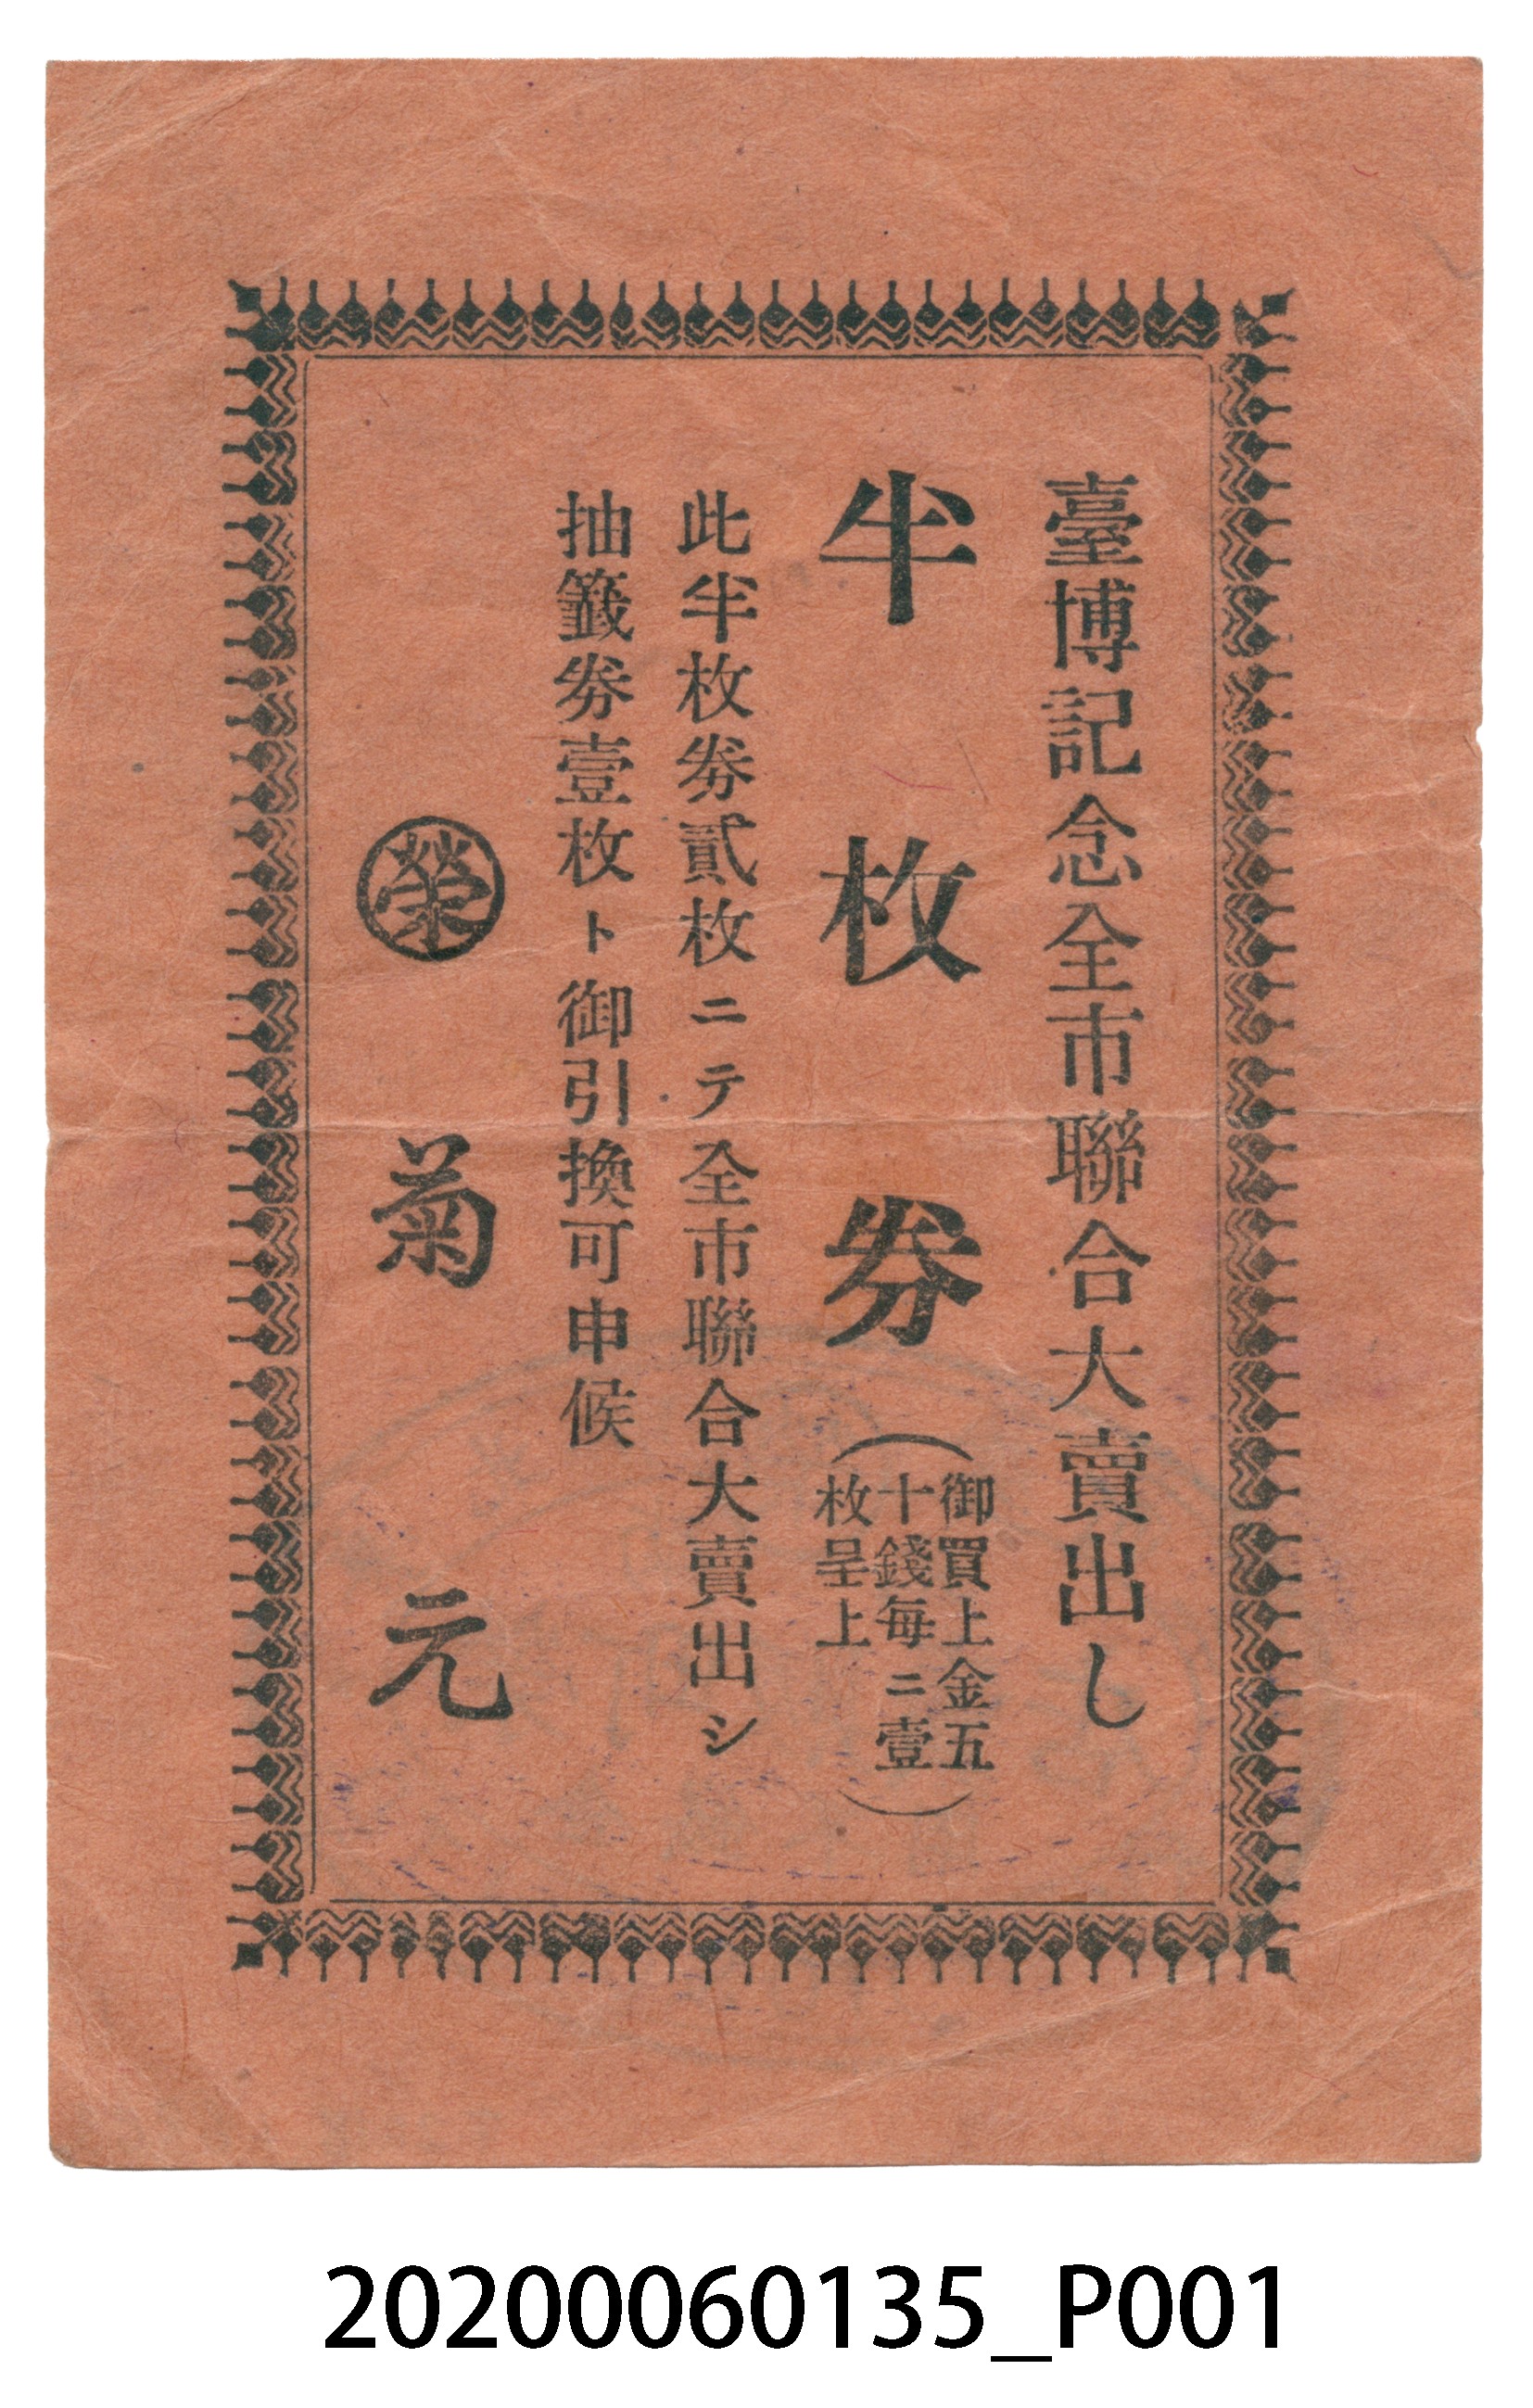 臺博記念全市聯合大賣出し
半枚券
(御買上金五
十錢每ニ壹
枚呈上)
此半枚券貳枚ニテ全市聯合大賣出シ
抽籤券壹枚ト御引換可申候
榮 菊元
20200060135_P001